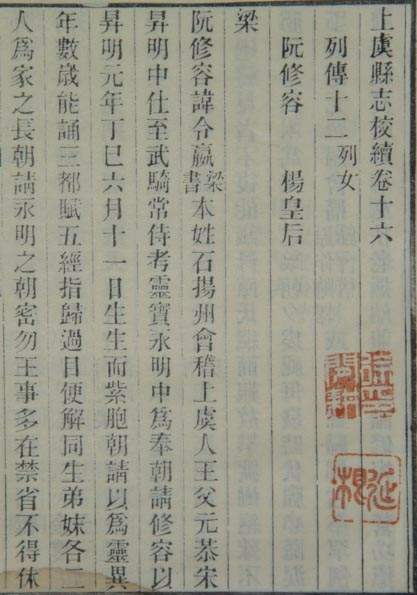 上虞縣志校續卷十六
列傳十二 列女
阮修容 楊皇后
梁
阮修容諱令嬴梁書本姓石揚州會稽上虞人王父元恭宋
昇明中仕至武騎常侍考靈寶永明中為奉朝請修容以
昇明元年丁巳六月十一日生生而紫胞朝請以為靈異
年數歲能誦三都賦五經指歸過目便解同生弟妹各二
人為家之長朝請永明之朝密勿王事多在禁省不得休